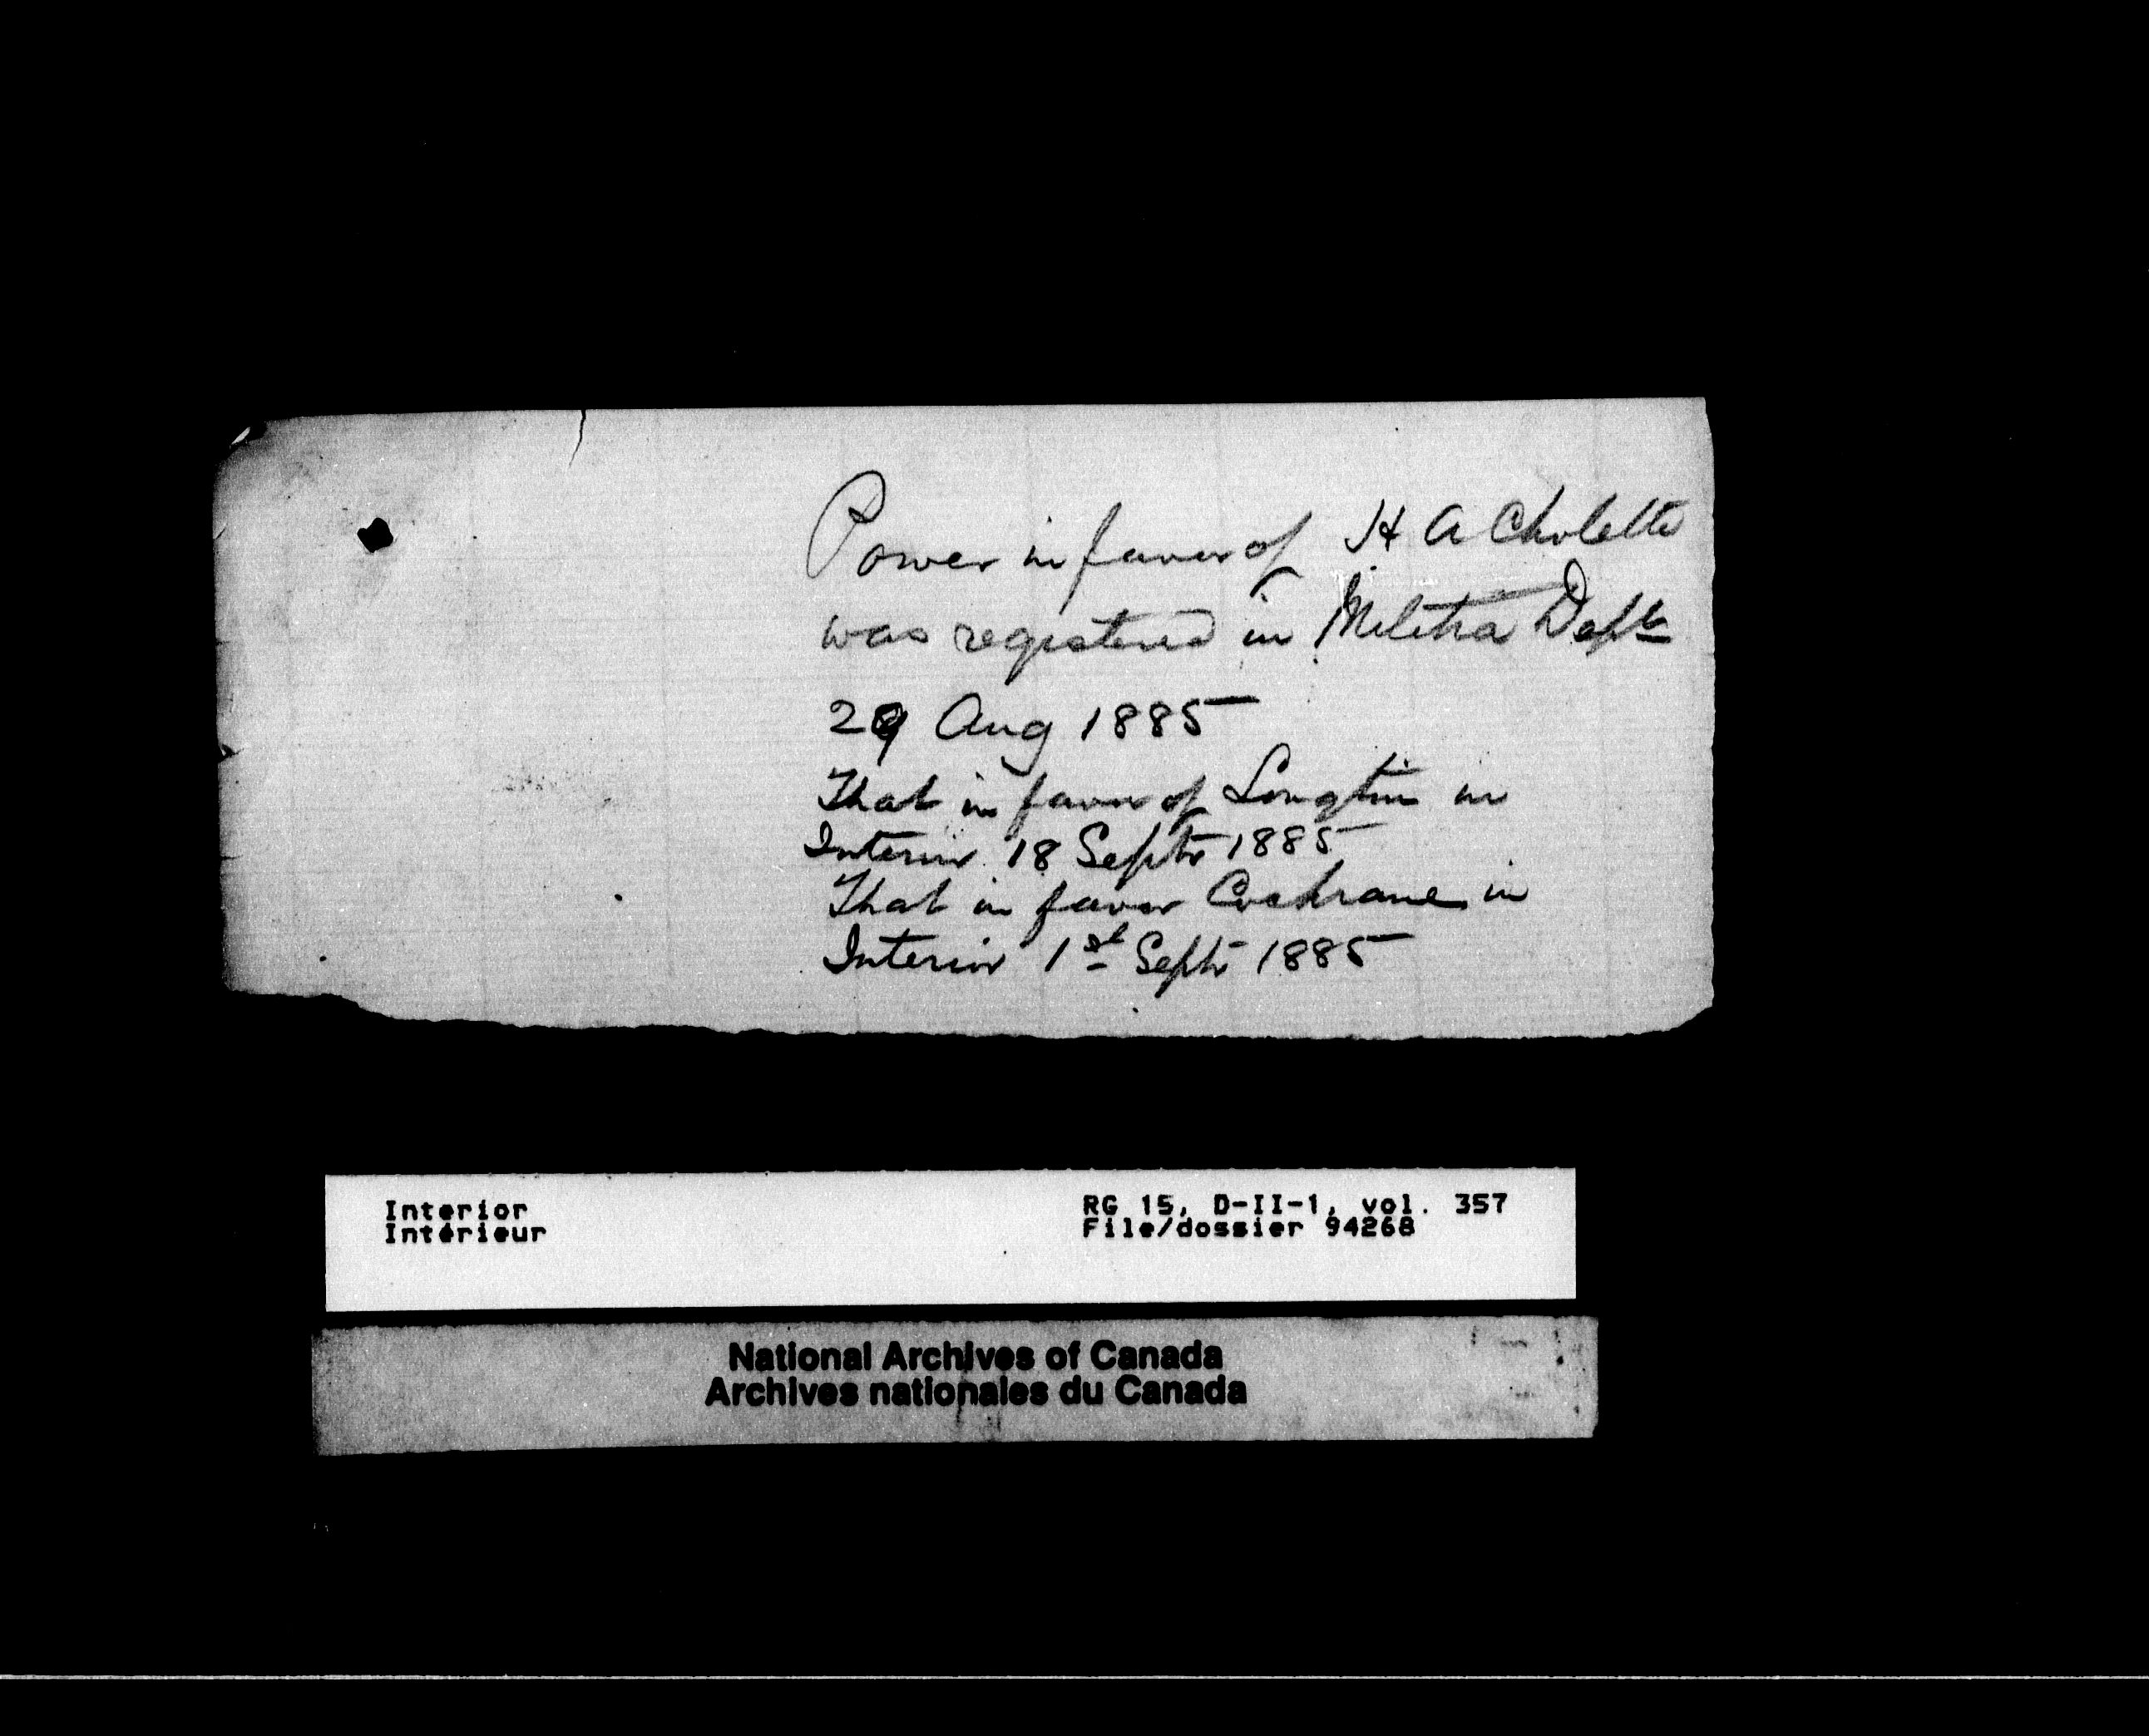 Power in favor of H A Cholette
was registered in Militia Dept
29 Aug 1885
That in favor of Longtin in
Interior 18 Septr 1885
That in favor Cochrane in
Interior 1st Septr 1885
Interior
Intérieur
RG 15, D-II-1, vol. 357
File/dossier 94268
National Archives of Canada
Archives nationales du Canada